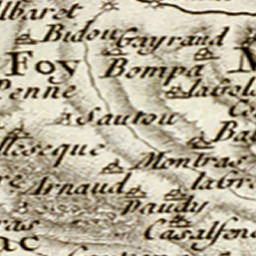 Albaret
Bidou Gayraud
Foy Bompa M
Penne
Sautou
Ba
Montras
Arnaud la Gr
Daudy
ras Casalfon
ac